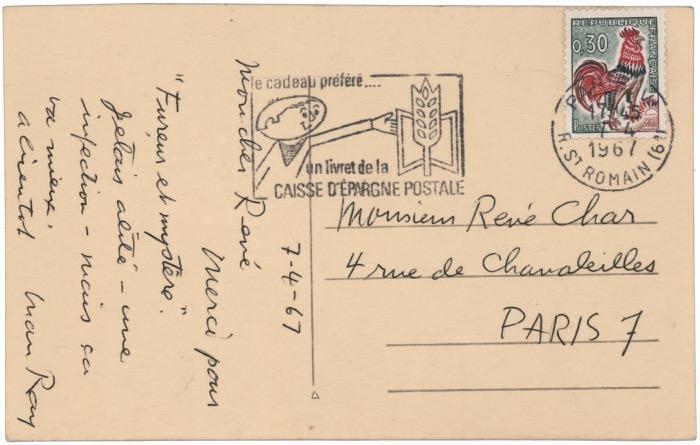 7-4-67
Mon cher René
Merci pour
"Fureur et mystère".
J'étais alité - une
infection - mais ça
va mieux.
à bientôt Man Ray
le cadeau préféré....
un livret de la
CAISSE D'ÉPARGNE POSTALE
REPUBLIQUE FRANÇAISE
0,30
POSTES
17H45
7-4
1967
R. ST ROMAIN (6e)
Monsieur René Char
4 rue de Chanaleilles
PARIS 7